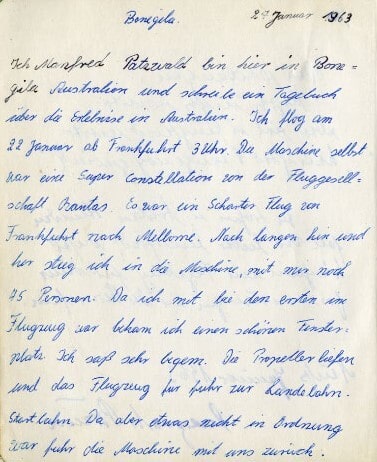 Bonegila. 27 Januar 1963
Ich Manfred Patzwald bin hier in Bone-
gila Australien und schreibe ein Tagebuch
über die Erlebnisse in Australien. Ich flog am
22 Januar ab Frankfuhrt 3 Uhr. Die Maschine selbst
war eine Super Constellation von der Fluggesell-
schaft Qantas. Es war ein Scharter Flug von
Frankfuhrt nach Melborne. Nach langen hin und
her stieg ich in die Maschine, mit mir noch
75 Personen. Da ich mit bei den ersten im
Flugzeug war bekam ich einen schönen Fenster-
platz. Ich saß sehr beqem. Die Propeller liefen
und das Flugzeug für fuhr zur Landebahn.
Startbahn. Da aber etwas nicht in Ordnung
war fuhr die Maschine mit uns zurück.